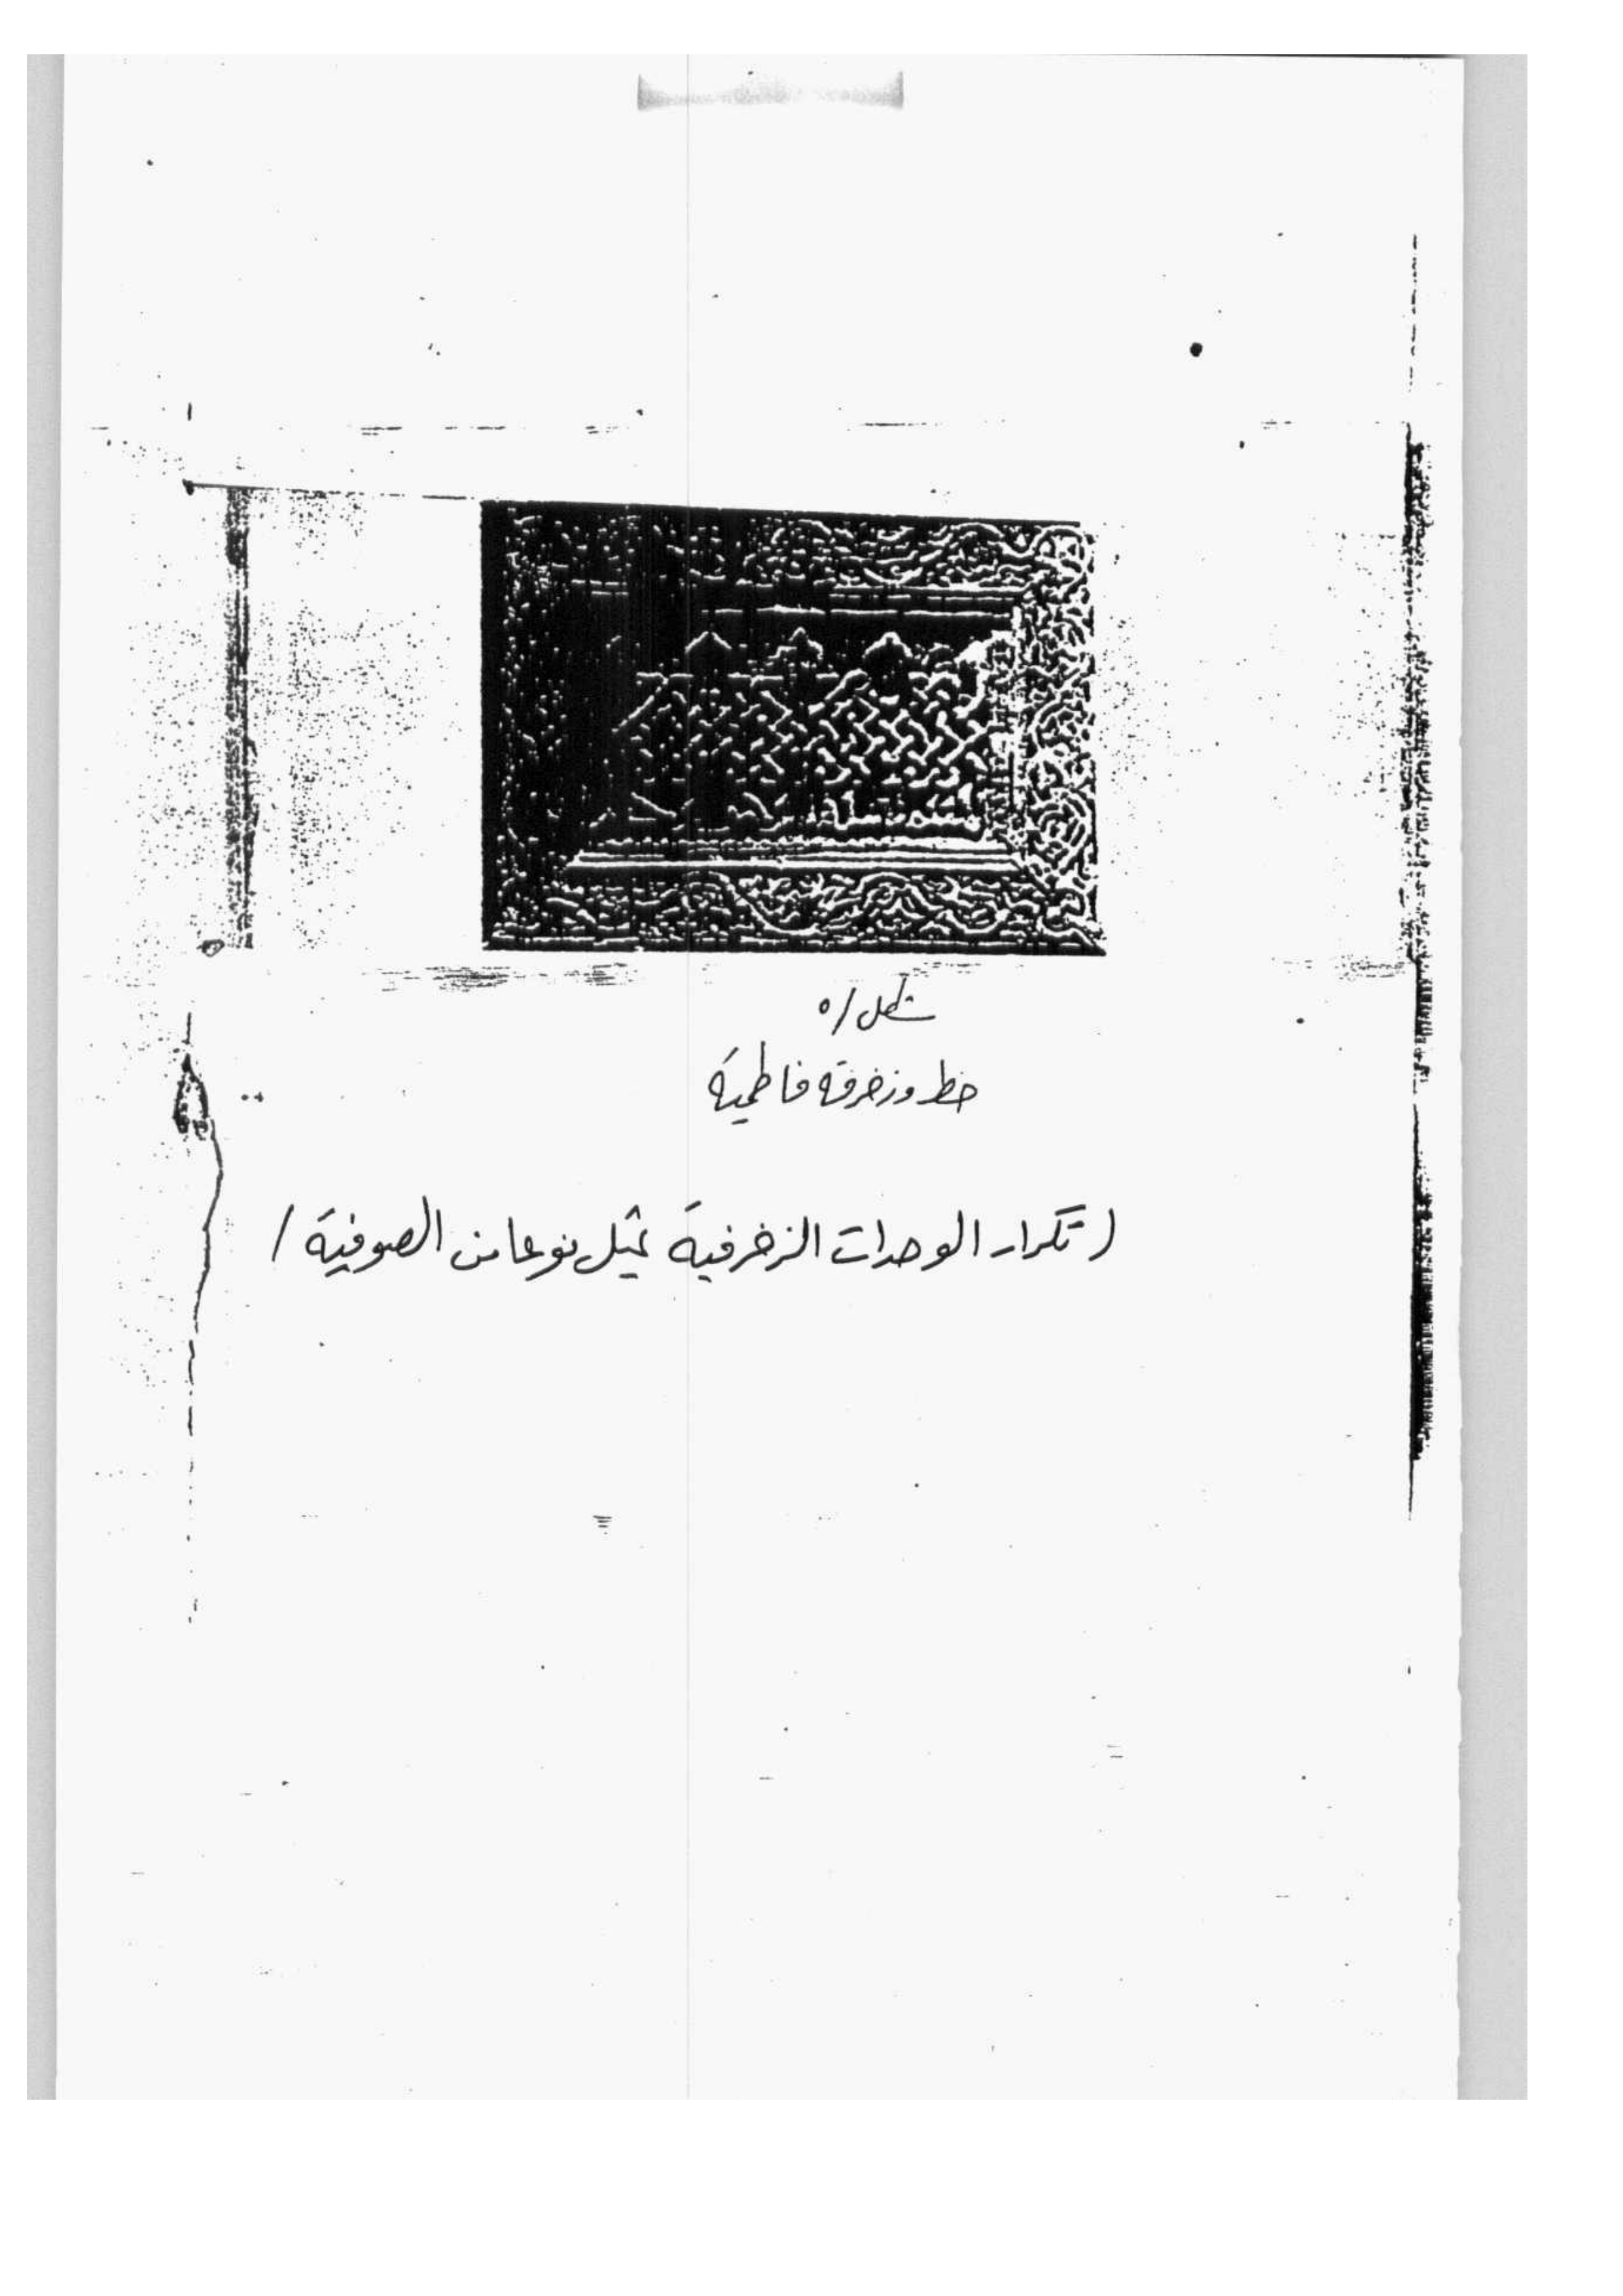 شكل / ٥
خط وزخرفة فاطمية
( تكرار الوحدات الزخرفية يمثل نوعا من الصوفية /